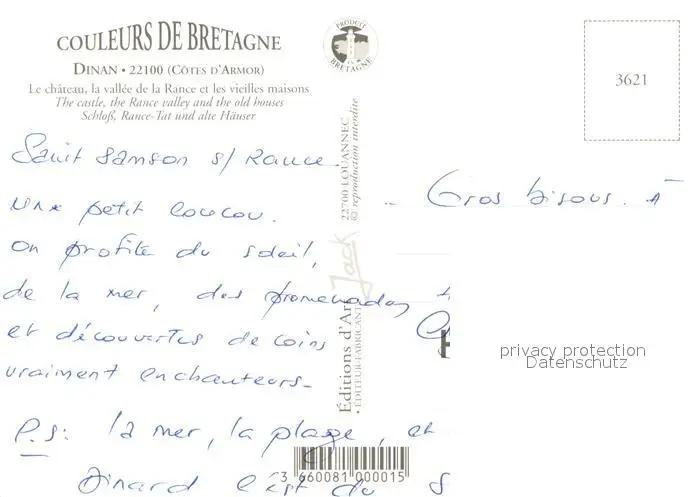 COULEURS DE BRETAGNE
DINAN • 22100 (CÔTES D'ARMOR)
Le château, la vallée de la Rance et les vieilles maisons
The castle, the Rance valley and the old houses
Schloß, Rance-Tat und alte Häuser
PRODUIT EN BRETAGNE
3621
Saint Samson s/ Rance.
Une petit coucou.
on profite du soleil,
de la mer, des promenades
et découvertes de coins
vraiment enchanteurs_
P.S: la mer, la plage, et
Dinard c'est du
Gros bisous. à
22700 LOUANNEC
© reproduction interdite
Jack
Éditions d'Art
• ÉDITEUR-FABRICANT
3 660081 000015
privacy protection
Datenschutz